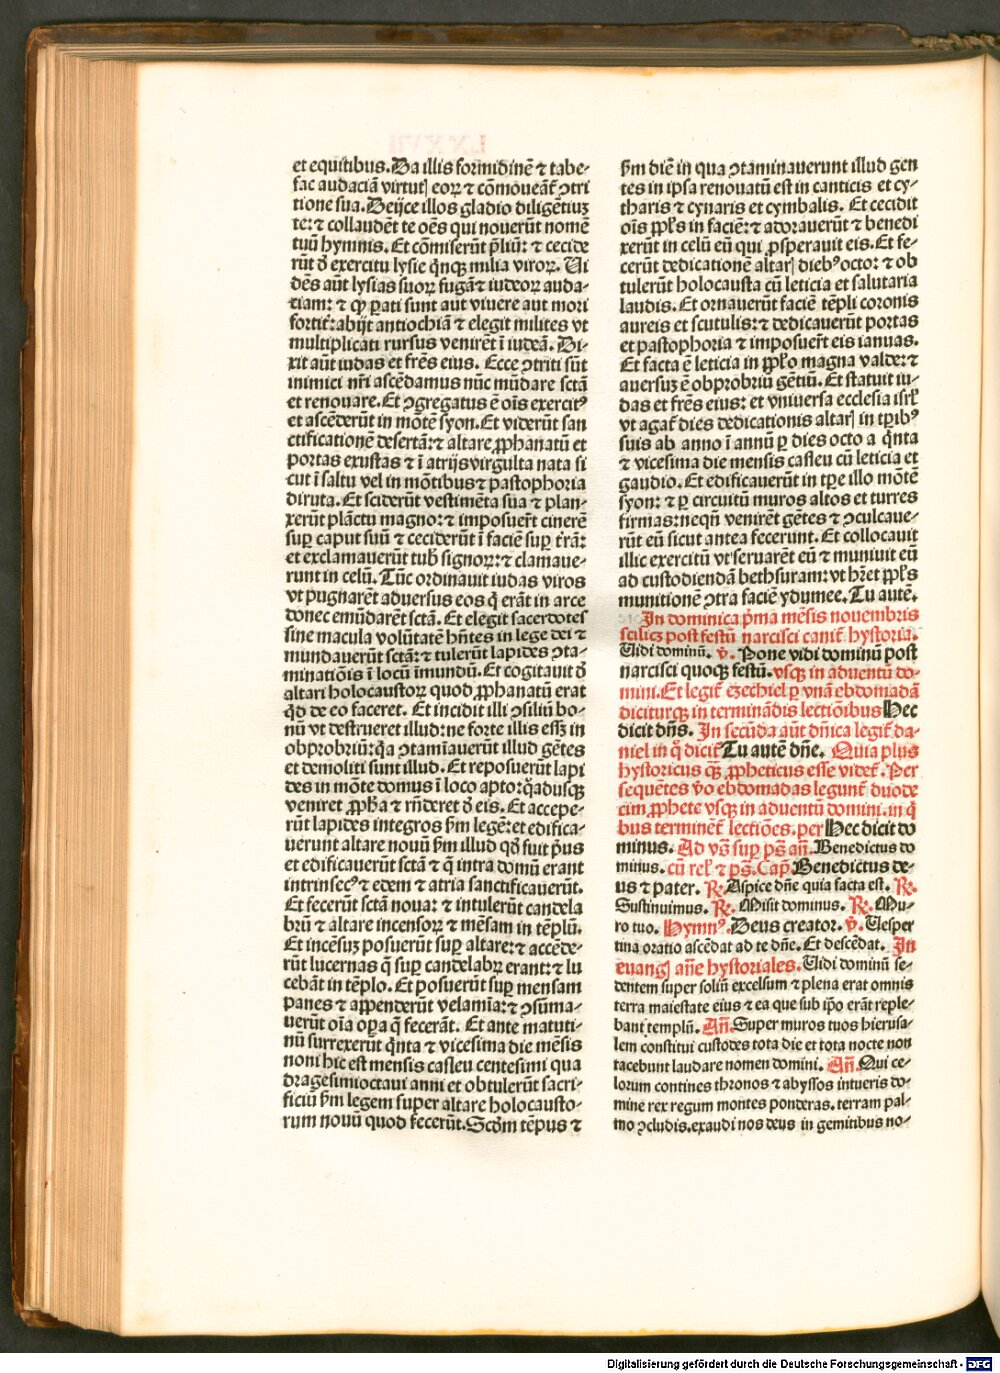 et equitibus. Da illis formidinē ⁊ tabe-
fac audaciā virtutꝭ eoꝝ ⁊ cōmoueāt᷑ ꝯtri
tione sua. Deijce illos gladio diligētiuꝫ
te: ⁊ collaudēt te oēs qui nouerūt nomē
tuū hymnis. Et cōmiserūt p̄liū: ⁊ cecide
rūt d̄ exercitu lysie q̄nqꝫ milia viroꝝ. Ui
dēs aūt lysias suoꝝ fugā ⁊ iudeoꝝ auda-
tiam: ⁊ qꝫ ꝑati sunt aut viuere aut mori
fortit᷑: abijt antiochiā ⁊ elegit milites vt
multiplicati rursus venirēt ī iudeā. Di-
xit aūt iudas et frēs eius. Ecce ꝯtriti sūt
inimici nr̄i ascēdamus nūc mūdare sctā
et renouare. Et ꝯgregatus ē oīs exercitꝰ
et ascēderūt in mōtē syon. Et viderūt san
ctificationē desertā: ⁊ altare ꝓphanatū et
portas exustas ⁊ ī atrijs virgulta nata si
cut ī saltu vel in mōtibus ⁊ pastophoria
diruta. Et sciderūt vestimēta sua ⁊ plan-
xerūt plāctu magno: ⁊ imposuer̄t cinerē
suꝑ caput suū ⁊ ceciderūt ī faciē suꝑ t̄rā:
et exclamauerūt tub̄ signoꝝ: ⁊ clamaue-
runt in celū. Tūc ordinauit iudas viros
vt pugnarēt aduersus eos q̄ erāt in arce
donec emūdarēt sctā. Et elegit sacerdotes
sine macula volūtatē hn̄tes in lege dei ⁊
mundauerūt sctā: ⁊ tulerūt lapides ꝯta-
minatiōis ī locū īmundū. Et cogitauit d̄
altari holocaustoꝝ quod ꝓphanatū erat
qd̄ de eo faceret. Et incidit illi ꝯsiliū bo-
nū vt destrueret illud: ne forte illis esset in
obprobriū: q̄a ꝯtamīauerūt illud gētes
et demoliti sunt illud. Et reposuerūt lapi
des in mōte domus ī loco apto: q̄adusqꝫ
veniret ꝓph̄a ⁊ rn̄deret d̄ eis. Et accepe-
rūt lapides integros s̄m legē: et edifica-
uerunt altare nouū s̄m illud qd̄ fuit p̄us
et edificauerūt sctā ⁊ q̄ intra domū erant
intrinsecꝰ ⁊ edem ⁊ atria sanctificauerūt.
Et fecerūt sctā noua: ⁊ intulerūt candela
brū ⁊ altare incensoꝝ ⁊ mēsam in tēplū.
Et incēsuꝫ posuerūt suꝑ altare: ⁊ accēde-
rūt lucernas q̄ suꝑ candelabꝝ erant: ⁊ lu
cebāt in tēplo. Et posuerūt suꝑ mensam
panes ⁊ appenderūt velamīa: ⁊ ꝯsūma-
uerūt oīa oꝑa q̄ fecerāt. Et ante matuti-
nū surrexerūt q̄nta ⁊ vicesima die mēsis
noni hic est mensis casleu centesimi qua
dragesimioctaui anni et obtulerūt sacri-
ficiū s̄m legem super altare holocausto-
rum nouū quod fecerūt. Scd̄m tēpus ⁊
s̄m diē in qua ꝯtaminauerunt illud gen
tes in ipsa renouatū est in canticis et cy-
tharis ⁊ cynaris et cymbalis. Et cecidit
oīs ppl̄s in faciē: ⁊ adorauerūt ⁊ benedi
xerūt in celū eū qui ꝓsperauit eis. Et fe-
cerūt dedicationē altarꝭ diebꝰ octo: ⁊ ob
tulerūt holocausta cū leticia et salutaria
laudis. Et ornauerūt faciē tēpli coronis
aureis et scutulis: ⁊ dedicauerūt portas
et pastophoria ⁊ imposuer̄t eis ianuas.
Et facta ē leticia in ppl̄o magna valde: ⁊
auersuꝫ ē obprobriū gētiū. Et statuit iu-
das et frēs eius: et vniuersa ecclesia isrl̄
vt agat᷑ dies dedicationis altarꝭ in tꝑibꝰ
suis ab anno ī annū ꝑ dies octo a q̄nta
⁊ vicesima die mensis casleu cū leticia et
gaudio. Et edificauerūt in tꝑe illo mōtē
syon: ⁊ ꝑ circuitū muros altos et turres
firmas: neqn̄ venirēt gētes ⁊ ꝯculcaue-
rūt eū sicut antea fecerunt. Et collocauit
illic exercitū vt seruarēt eū ⁊ muniuit eū
ad custodiendā bethsuram: vt hr̄et ppl̄s
munitionē ꝯtra faciē ydumee. Tu autē.
In dominica p̄ma mēsis nouembris
scilicꝫ post festū narcisci canit᷑ hystoria.
Uidi dominū. v̄. Pone vidi dominū post
narcisci quoqꝫ festū. vsqꝫ in aduentū do-
mini. Et legit᷑ ezechiel ꝑ vnā ebdomadā
diciturqꝫ in terminādis lectiōibus Hec
dicit dn̄s. In secūda aūt dn̄ica legit᷑ da-
niel in q̊ dicit᷑ Tu autē dn̄e. Quia plus
hystoricus qꝫ ꝓpheticus esse videt᷑. Per
sequētes v̊o ebdomadas legunt᷑ duode
cim ꝓphete vsqꝫ in aduentū domini. in q̄
bus terminēt᷑ lectiōes. per Hec dicit do
minus. Ad vs̄ suꝑ ps̄ an̄. Benedictus do
minus. cū rel̄ ⁊ ps̄. Cap̄. Benedictus de-
us ⁊ pater. ℞. Aspice dn̄e quia facta est. ℞.
Sustinuimus. ℞. Misit dominus. ℞. Mu-
ro tuo. Hymnꝰ. Deus creator. v̄. Uesper
tina oratio ascēdat ad te dn̄e. Et descēdat. In
euangꝭ an̄e hystoriales. Uidi dominū se-
dentem super soliū excelsum ⁊ plena erat omnis
terra maiestate eius ⁊ ea que sub ip̄o erāt reple-
bant templū. An̄. Super muros tuos hierusa-
lem constitui custodes tota die et tota nocte non
tacebunt laudare nomen domini. An̄. Qui ce-
lorum contines thronos ⁊ abyssos intueris do-
mine rex regum montes ponderas. terram pal-
mo ꝯcludis. exaudi nos deus in gemitibus no-
Digitalisierung gefördert durch die Deutsche Forschungsgemeinschaft - DFG